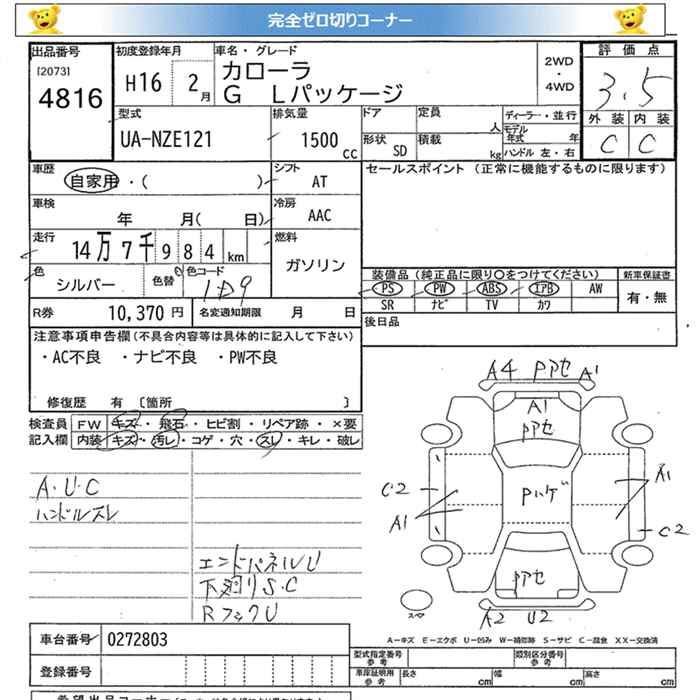 完全ゼロ切りコーナー
出品番号 初度登録年月 車名・グレード 2WD・4WD 評価点
[2073] 4816 H16 2月 カローラ G Lパッケージ 3.5
外装 内装
C C
型式 排気量 ドア 定員 人 ディーラー・並行
UA-NZE121 1500cc 形状 SD 積載 kg モデル年式 年 ハンドル 左・右
車歴 シフト セールスポイント (正常に機能するものに限ります)
自家用・( ) AT
車検 冷房
年 月( 日) AAC
走行 燃料
14万7千984 km ガソリン
色 シルバー 色替 色コード 1D9
装備品 (純正品に限り○をつけてください) 新車保証書
PS PW ABS エアB AW 有・無
SR ナビ TV カワ
R券 10,370円 名変通知期限 月 日 後日品
注意事項申告欄 (不具合内容等は具体的に記入して下さい)
・AC不良 ・ナビ不良 ・PW不良
修復歴 有 [箇所 ]
検査員 FW キズ・飛石・ヒビ割・リペア跡・×要
記入欄 内装 キズ・汚レ・コゲ・穴・スレ・キレ・破レ
A.U.C
ハンドルスレ
エンドパネルU
下廻りS.C
RフックU
A4 Pアセ A1
A1
Pアセ
C2
A1
Pハゲ
A1
C2
Pアセ
スペア
A2 U2
A―キズ E―エクボ U―凹み W―補修跡 S―サビ C―腐食 XX―交換済
車台番号 0272803
登録番号
型式指定番号 参考 類別区分番号 参考
車庫証明用 参考 長さ cm 幅 cm 高さ cm
希望出品コーナー